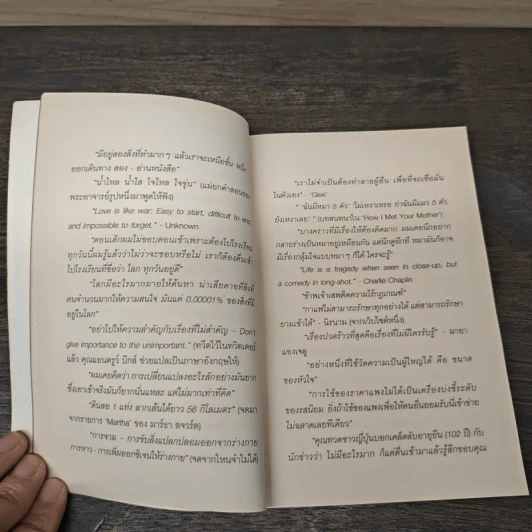 "มีอยู่สองสิ่งที่ทำมาก ๆ แล้วเราจะเหนือชั้น หนึ่ง
ออกเดินทาง สอง - อ่านหนังสือ"
"น้ำไหล น้ำใส ใจไหล ใจขุ่น" (แม่ยกคำสอนของ
พระอาจารย์รูปหนึ่งมาพูดให้ฟัง)
"Love is like war: Easy to start, difficult to end,
and impossible to forget." - Unknown
"ตอนเด็กผมไม่ชอบสอนเช้าเพราะต้องไปโรงเรียน
ทุกวันนี้ผมรู้แล้วว่าไม่ว่าจะชอบหรือไม่ เราก็ต้องตื่นเช้า
ไปโรงเรียนที่ชื่อว่า โลก ทุกวันอยู่ดี"
"โลกมีอะไรมากมายให้ค้นหา น่าเสียดายที่สิ่งที่
คนจำนวนมากให้ความสนใจ มันแค่ 0.00001% ของสิ่งที่มี
อยู่ในโลก"
"อย่าไปให้ความสำคัญกับเรื่องที่ไม่สำคัญ - Don't
give importance to the unimportant." (ทวีตไว้ในทวิตเตอร์
แล้ว คุณแอนดรูว์ บิกส์ ช่วยแปลเป็นภาษาอังกฤษให้)
"ผมเคยคิดว่า การเปลี่ยนแปลงอะไรสักอย่างมันยาก
ซึ่งเอาเข้าจริงมันก็ยากนั่นแหละ แต่ไม่มากเท่าที่คิด"
"ดินสอ 1 แท่ง ลากเส้นได้ยาว 56 กิโลเมตร" (จดมา
จากรายการ 'Martha' ของ มาร์ธา สจวร์ต)
"การจาม - การขับสิ่งแปลกปลอมออกจากร่างกาย
การหาว - การเพิ่มออกซิเจนให้ร่างกาย" (จดจากไหนจำไม่ได้)
"เราไม่จำเป็นต้องทำลายผู้อื่น เพื่อที่จะเชื่อมั่น
ในตัวเอง" - 'Glee'
"'ฉันมีหมา 5 ตัว' 'ไม่เหงาเหรอ ย่าฉันมีแมว 5 ตัว
ยังเหงาเลย'" (บทสนทนาใน 'How I Met Your Mother')
"บางคราวที่มีเรื่องให้ต้องคิดมาก ผมเคยนึกอยาก
กลายร่างเป็นหมาอยู่เหมือนกัน แต่นึกดูอีกที หมามันก็อาจ
มีเรื่องกลุ้มใจแบบหมา ๆ ก็ได้ ใครจะรู้"
"Life is a tragedy when seen in close-up, but
a comedy in long-shot." - Charlie Chaplin
"ข้าพเจ้าเสพติดความไร้กฎเกณฑ์"
"กาแฟไม่สามารถรักทุกอย่างได้ แต่สามารถรักษา
ยามเช้าได้" - นิรนาม (จากเว็บไซต์หนึ่ง)
"เรื่องปวดร้าวที่สุดคือเรื่องที่ไม่มีใครรับรู้" - มายา
แองเจลู
"อย่างหนึ่งที่ใช้วัดความเป็นผู้ใหญ่ได้ คือ ขนาด
ของหัวใจ"
"การใช้ของราคาแพงไม่ได้เป็นเครื่องบ่งชี้ระดับ
ของรสนิยม ยิ่งถ้าใช้ของแพงเพื่อให้คนอื่นยอมรับนี่เข้าข่าย
ไม่ฉลาดเลยทีเดียว"
"คุณทวดชาวญี่ปุ่นบอกเคล็ดลับอายุยืน (102 ปี) กับ
นักข่าวว่า ไม่มีอะไรมาก ก็แค่ตื่นเช้ามาแล้วรู้สึกขอบคุณ